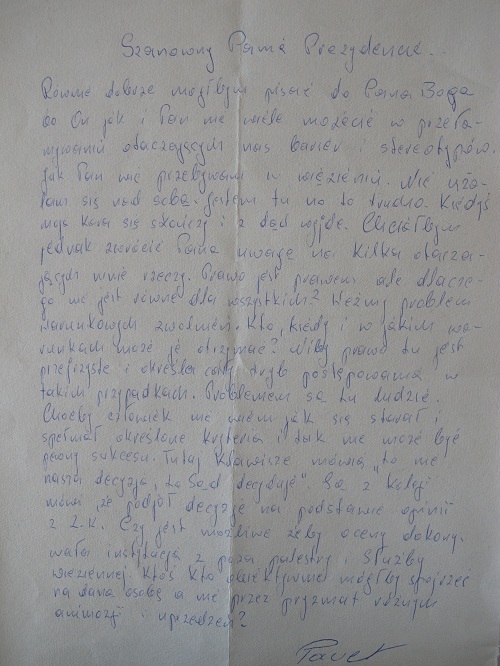 Szanowny Panie Prezydencie...
Równie dobrze mógłbym pisać do Pana Boga
bo On jak i Pan nie wiele możecie w przeła-
mywaniu otaczających nas barier i stereotypów.
Jak Pan wie przebywam w więzieniu. Nie uża-
lam się nad sobą. Jestem tu no to trudno. Kiedyś
moja kara się skończy i z tąd wyjdę. Chciałbym
jednak zwrócić Pana uwagę na kilka otacza-
jących mnie rzeczy. Prawo jest prawem ale dlacze-
go nie jest równe dla wszystkich? Weźmy problem
warunkowych zwolnień. Kto, kiedy i w jakim wa-
runkach może je otrzymać? Niby prawo tu jest
przejrzyste i określa cały tryb postępowania w
takim przypadkach. Problemem są tu ludzie.
Choćby człowiek nie wiem jak się starał i
spełniał określone kryteria i tak nie może być
pewny sukcesu. Tutaj klawisze mówią, "to nie
nasza decyzja, to Sąd decyduje". Sąd z kolei
mówi, że podjął decyzję na podstawie opinii
z Z.K. Czy jest możliwe żeby oceny dokony-
wała instytucja z poza palestry i Służby
więziennej. Ktoś kto obiektywnie mógłby spojrzeć
na daną osobę a nie przez pryzmat różnych
animozji i uprzedzeń?
Paweł